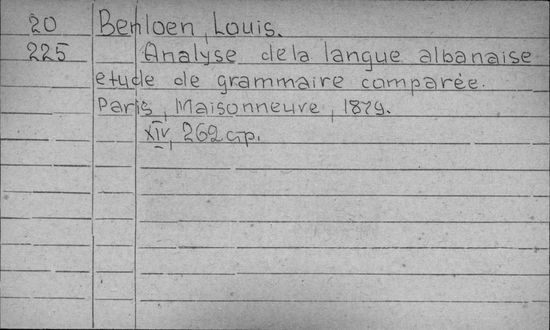 20 Benloen, Louis.
225 Analyse dela langue albanaise
etude de grammaire comparée.
Paris, Maisonneuve, 1879.
XIV, 262 crp.